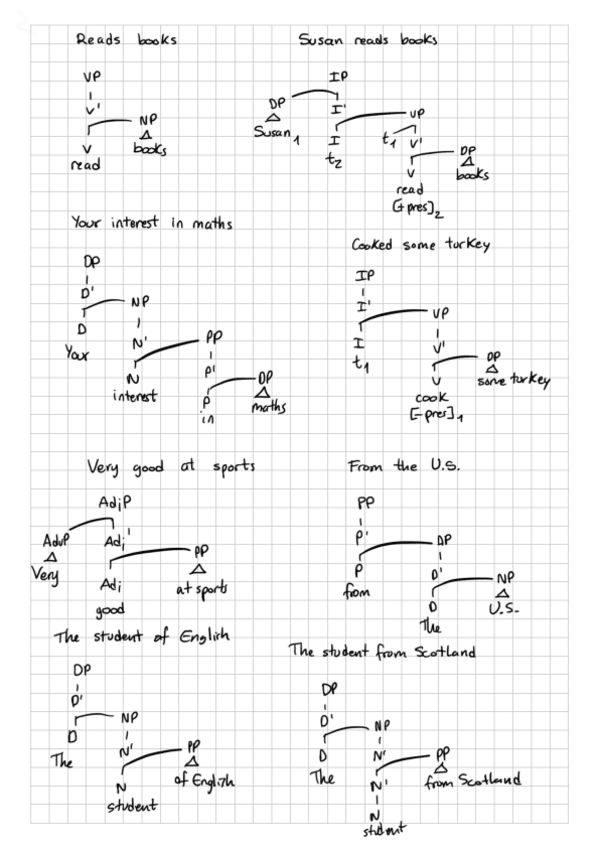 Reads books
VP
V'
NP
V
books
read
Susan reads books
IP
DP
I'
VP
Susan 1
I
t1
V'
t2
DP
V
books
read
[+pres]2
Your interest in maths
DP
D'
NP
D
Your
N'
PP
N
P'
interest
DP
P
maths
in
Cooked some turkey
IP
I'
VP
I
V'
t1
DP
V
some turkey
cook
[-pres]1
Very good at sports
AdjP
AdvP
Adj'
PP
Very
Adj
at sports
good
From the U.S.
PP
P'
DP
P
D'
from
NP
D
U.S.
The
The student of English
DP
D'
NP
D
N'
PP
The
of English
N
student
The student from Scotland
DP
D'
NP
D
N'
PP
The
from Scotland
N'
N
student